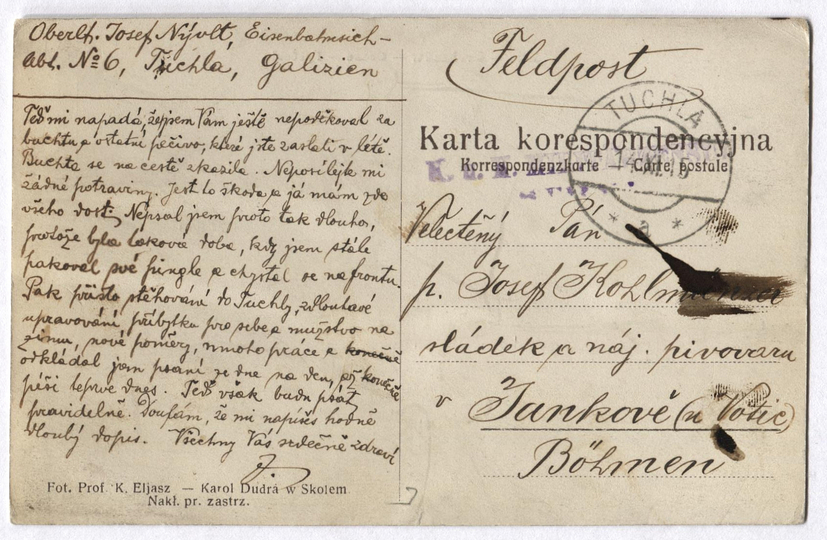 Oberlt. Josef Nývlt, Eisenbahnsich-
Abt. No 6, Tuchla, Galizien
Teď mi napadá, že jsem Vám ještě nepoděkoval za
buchtu a ostatní pečivo, které jste zaslali v létě.
Buchta se na cestě zkazila. Neposílejte mi
žádné potraviny. Jest to škoda a já mám zde
všeho dost. Nepsal jsem proto tak dlouho,
protože byla taková doba, kdy jsem stále
pakoval své pingle a chystal se na frontu.
Pak přišlo stěhování do Tuchly, zdlouhavé
upravování příbytku pro sebe a mužstvo na
zimu, nové poměry, mnoho práce a konečně
odkládal jsem psaní ze dne na den, až konečně
píši teprve dnes. Teď však budu psát
pravidelně. Doufám, že mi napíšeš hodně
dlouhý dopis. Všechny Vás srdečně zdraví
J.
Fot. Prof. K. Eljasz — Karol Dudra w Skolem
Nakł. pr. zastrz.
Feldpost
TUCHLA
Karta korespondencyjna
Korrespondenzkarte — Carte postale
K. u. k.
* a *
Velectěný Pán
p. Josef
sládek a náj. pivovaru
v Jankově (u Votic)
Böhmen